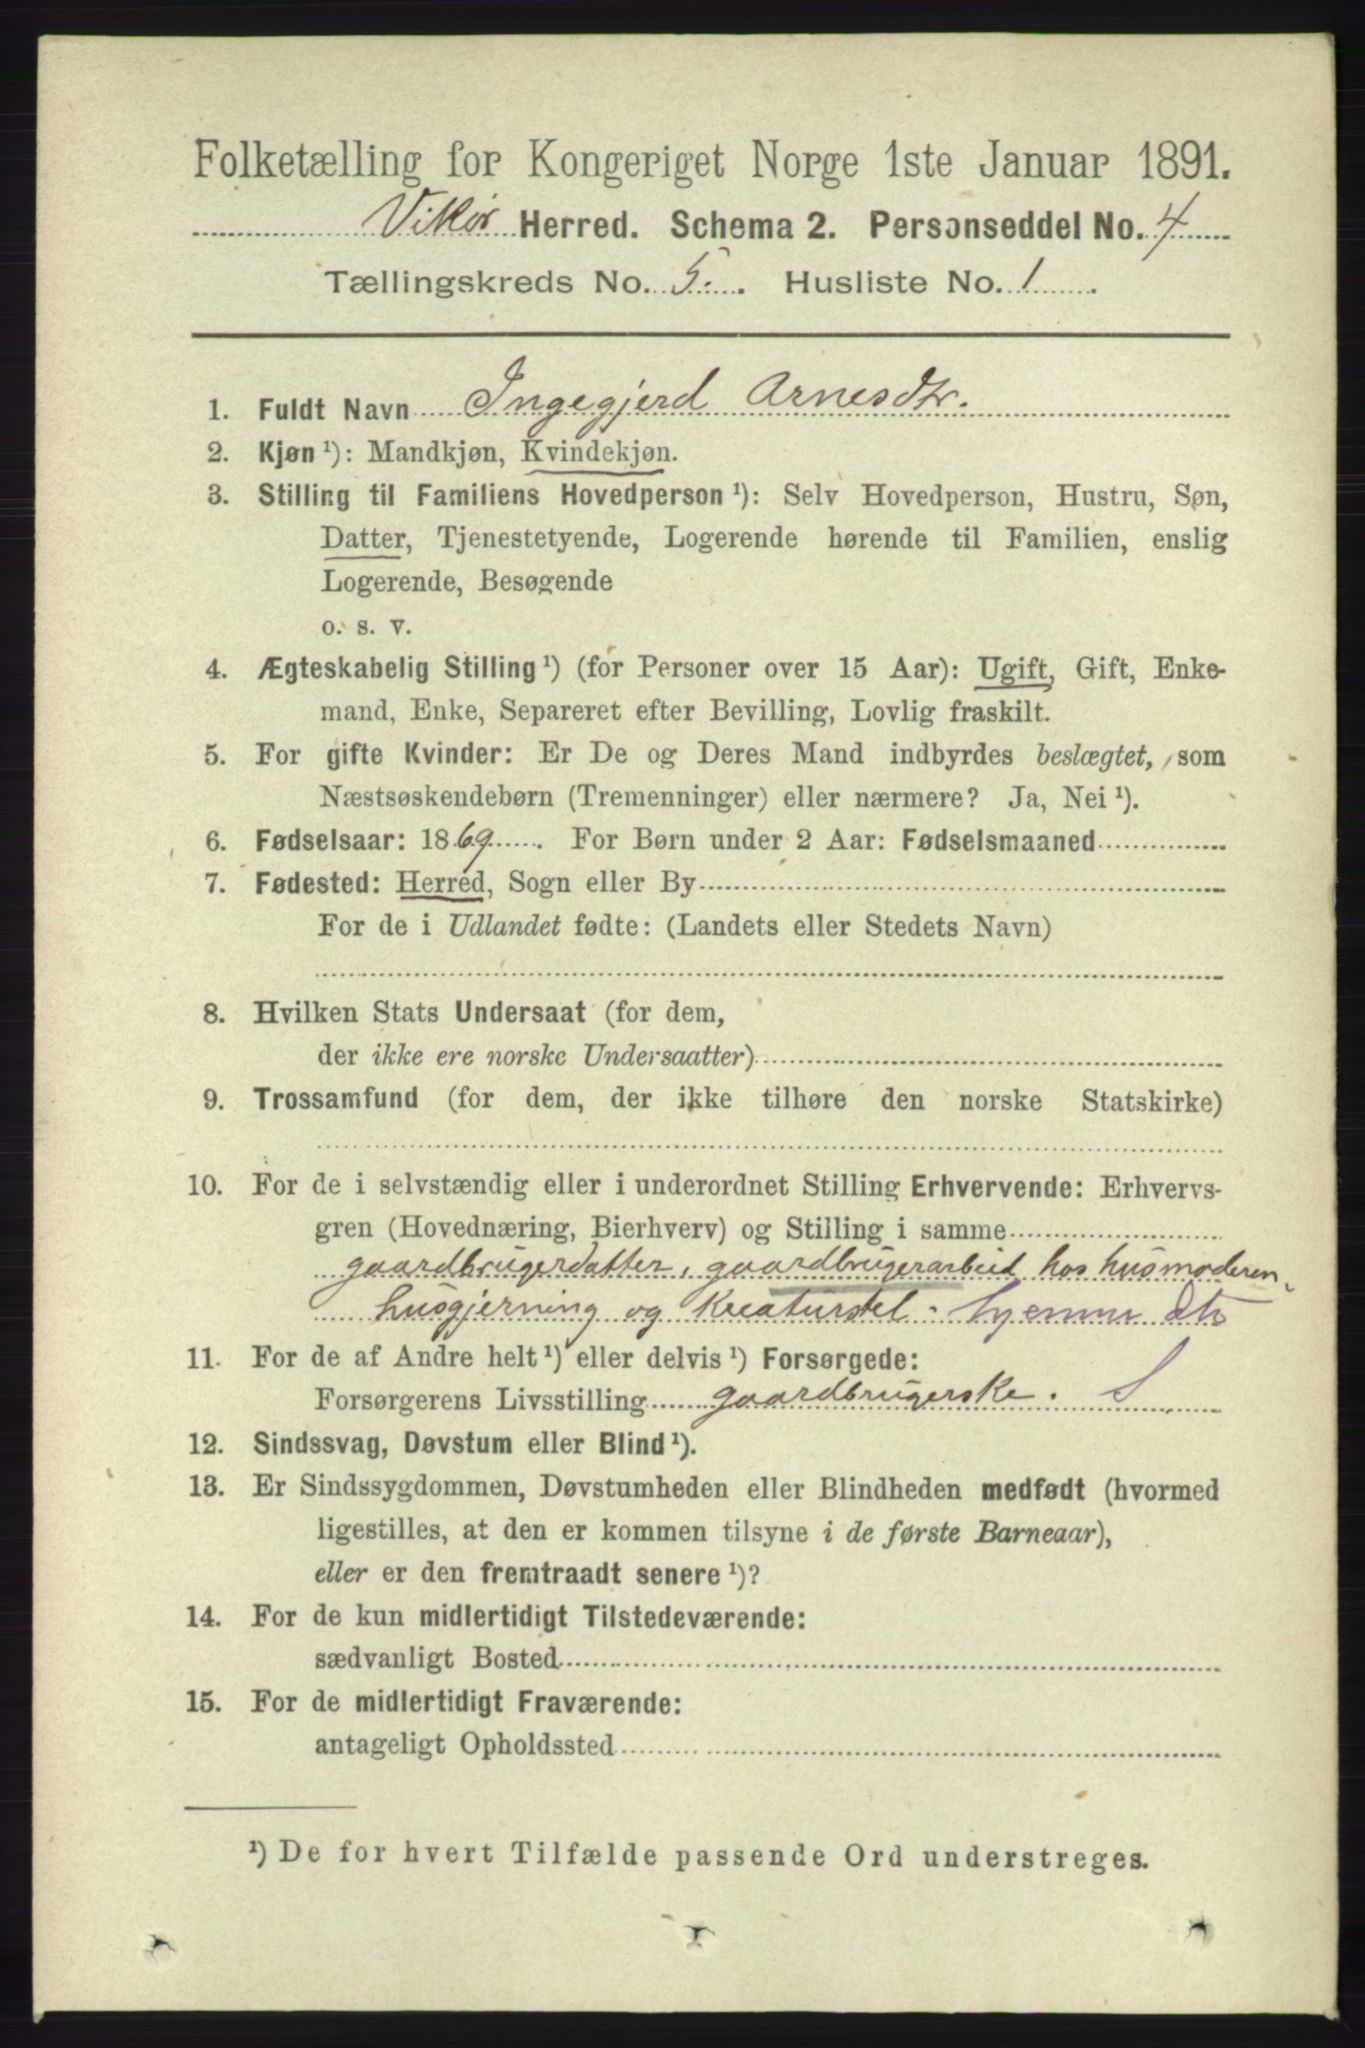 Folketælling for Kongeriget Norge 1ste Januar 1891.
Vikør Herred. Schema 2. Personseddel No. 4
Tællingskreds No. 5. Husliste No. 1.
1. Fuldt Navn Ingegjerd Arnesdtr.
2. Kjøn ¹): Mandkjøn, Kvindekjøn.
3. Stilling til Familiens Hovedperson ¹): Selv Hovedperson, Hustru, Søn,
Datter, Tjenestetyende, Logerende hørende til Familien, enslig
Logerende, Besøgende
o. s. v.
4. Ægteskabelig Stilling ¹) (for Personer over 15 Aar): Ugift, Gift, Enke-
mand, Enke, Separeret efter Bevilling, Lovlig fraskilt.
5. For gifte Kvinder: Er De og Deres Mand indbyrdes beslægtet, som
Næstsøskendebørn (Tremenninger) eller nærmere? Ja, Nei ¹).
6. Fødselsaar: 1869. For Børn under 2 Aar: Fødselsmaaned
7. Fødested: Herred, Sogn eller By
For de i Udlandet fødte: (Landets eller Stedets Navn)
8. Hvilken Stats Undersaat (for dem,
der ikke ere norske Undersaatter)
9. Trossamfund (for dem, der ikke tilhøre den norske Statskirke)
10. For de i selvstændig eller i underordnet Stilling Erhvervende: Erhvervs-
gren (Hovednæring, Bierhverv) og Stilling i samme
gaardbrugerdatter, gaardbrugerarbeid hos husmoderen,
husgjerning og Kreaturstel. hjemmedtr
11. For de af Andre helt ¹) eller delvis ¹) Forsørgede:
Forsørgerens Livsstilling gaardbrugerske. S
12. Sindssvag, Døvstum eller Blind ¹).
13. Er Sindssygdommen, Døvstumheden eller Blindheden medfødt (hvormed
ligestilles, at den er kommen tilsyne i de første Barneaar),
eller er den fremtraadt senere ¹)?
14. For de kun midlertidigt Tilstedeværende:
sædvanligt Bosted
15. For de midlertidigt Fraværende:
antageligt Opholdssted
¹) De for hvert Tilfælde passende Ord understreges.